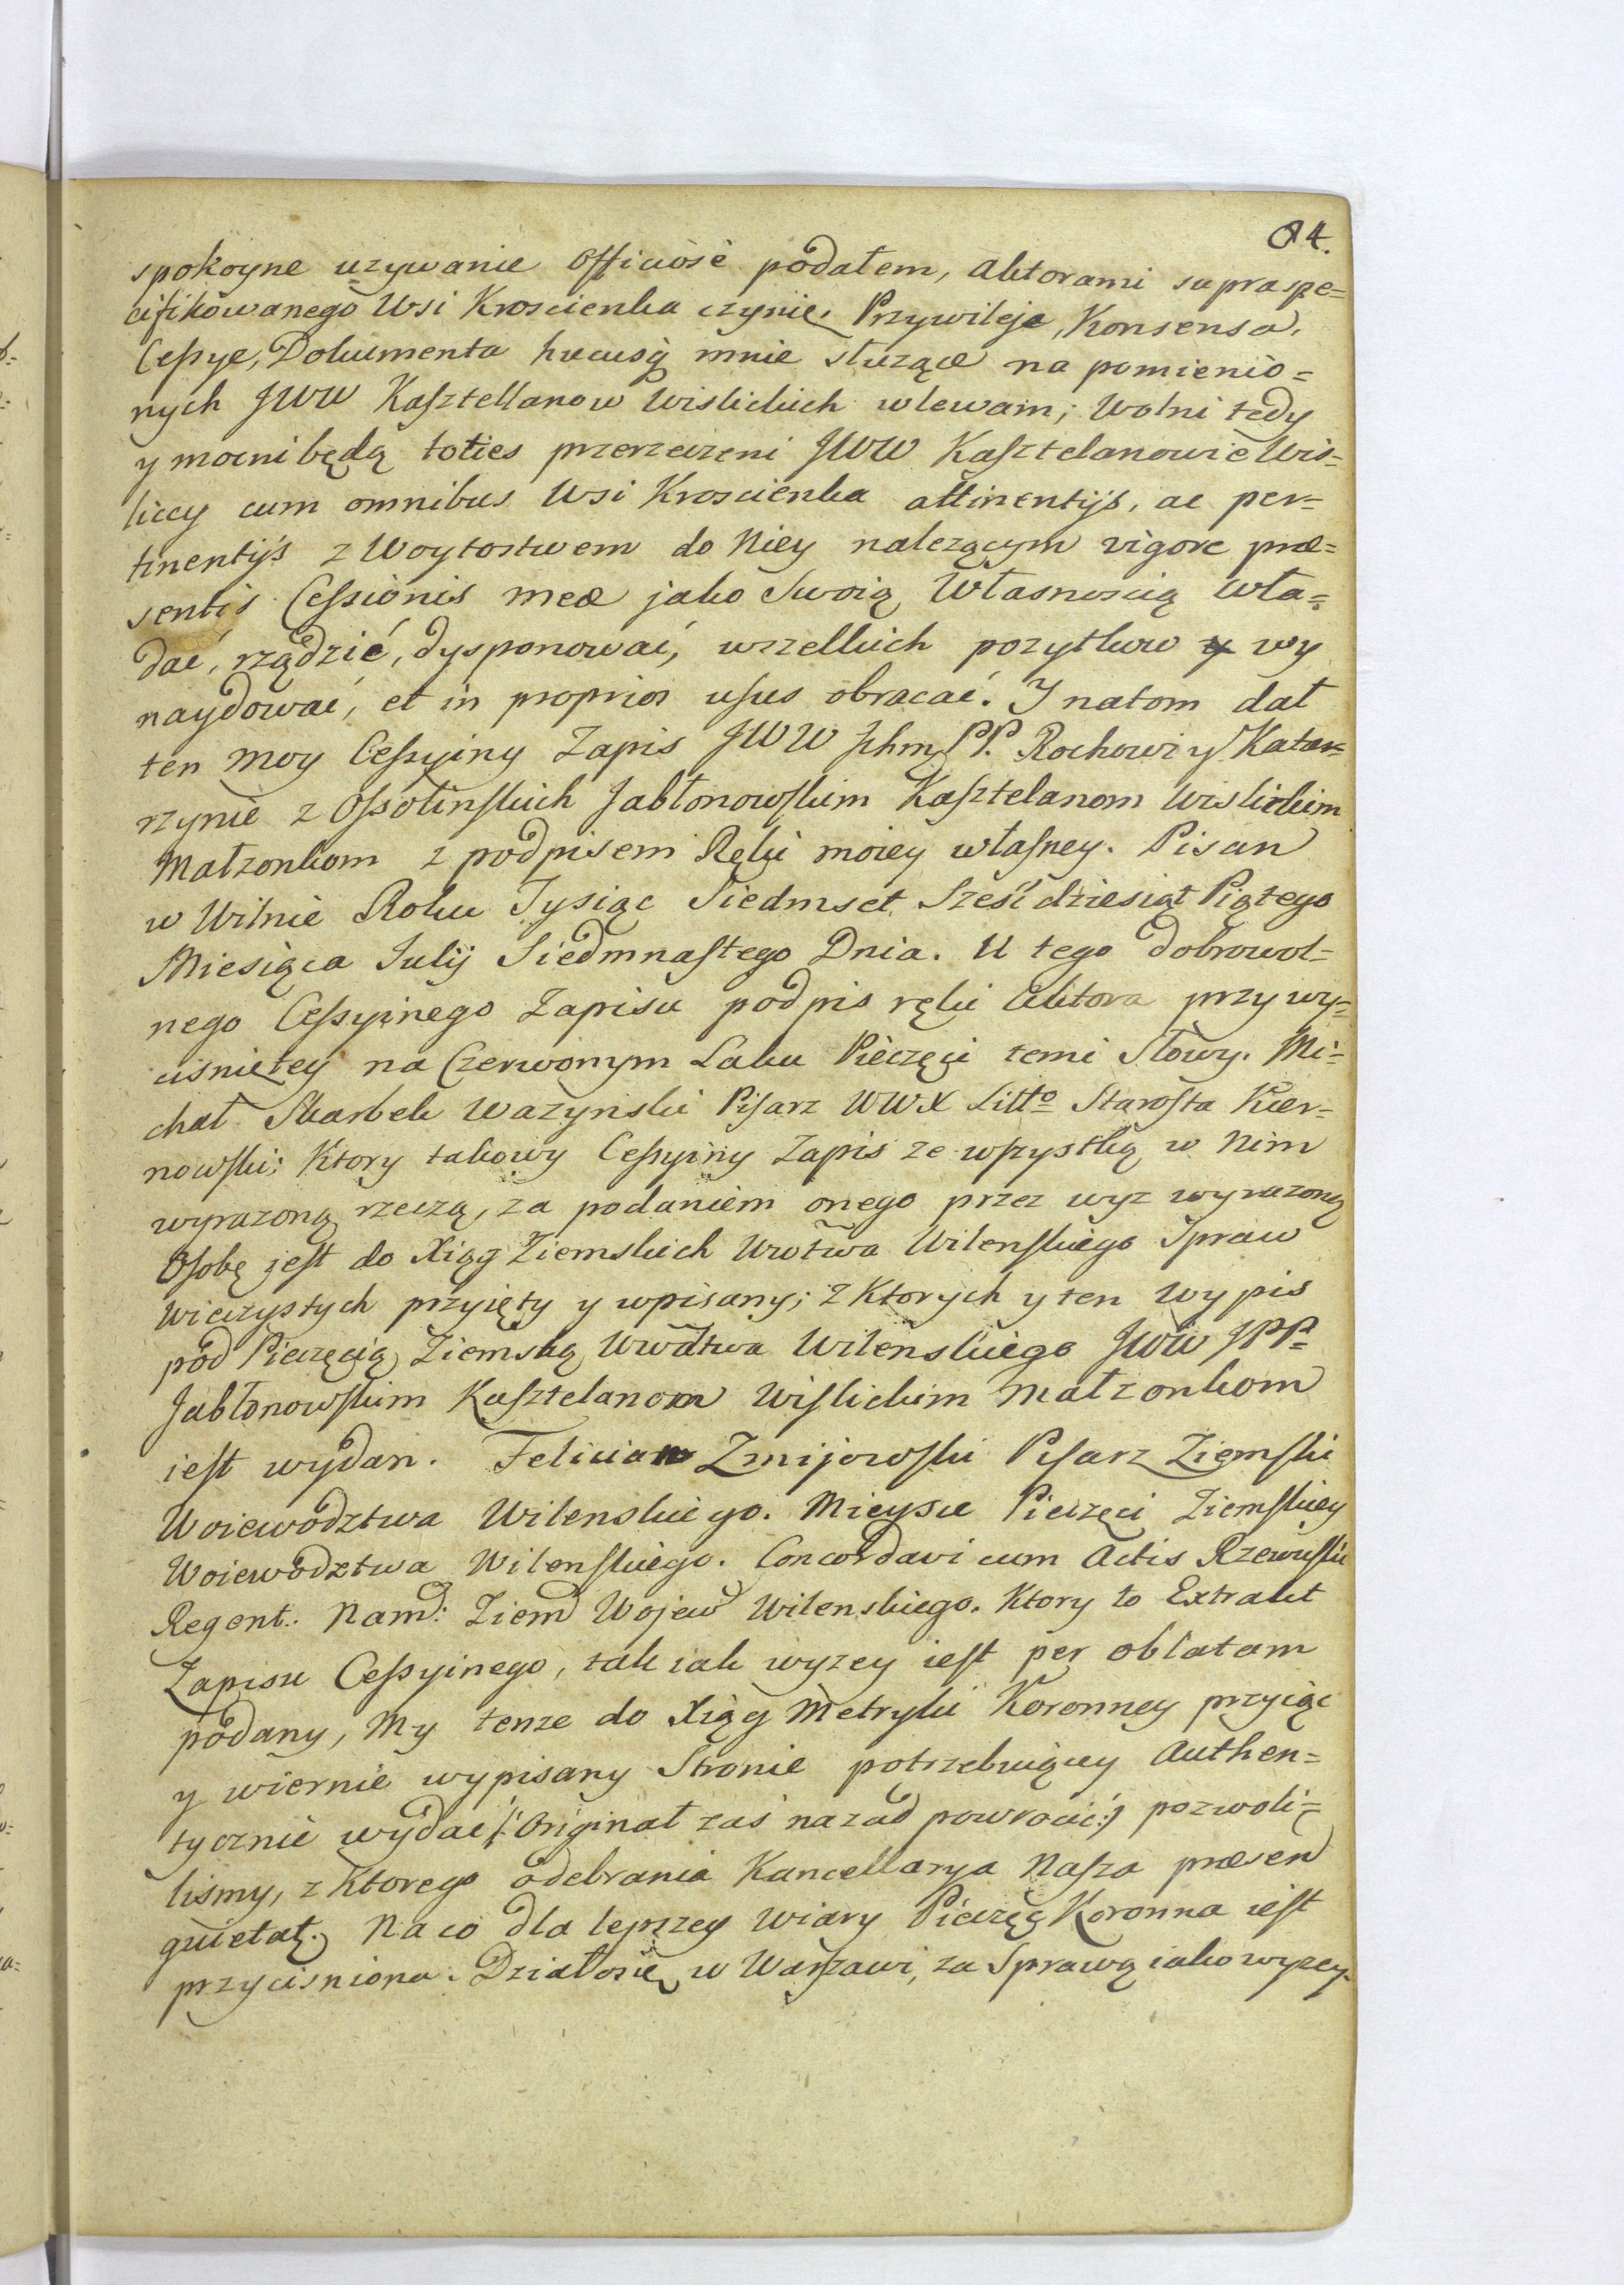 84.
spokoyne uzywanie Officiosè podałem, Aktorami supraspe=
cifikowanego Wsi Kroscienka czynię. Przywileje, Konsensa,
Cessye, Dokumenta hucusq́ mnie służące na pomienio=
nych JWW Kasztellanow Wislickich wlewam; Wolni tedy
y mocni będą toties przerzeczeni JWW Kasztelanowie Wis=
liccy cum omnibus Wsi Kroscienka attinentijs, ac per=
tinentijs z Woytostwem do Niey nalezącym vigore præ=
sentis Cessionis meæ jako Swoią Własnoscią wła=
dać, rządzić, dysponować, wszelkich pozytkow wy
naydować, et in proprios usus obracać. I natom dał
ten moy Cessyiny Zapis JWW Jchm PP. Rochowi y Kata=
rzynie z Ossolinskich Jabłonowskim Kasztelanom Wislickim
Małzonkom z podpisem Ręki moiey własney. Pisan
w Wilnie Roku Tysiąc Siedmset Sześćdziesiąt Piątego
Miesiąca Julij Siedmnastego Dnia. U tego dobrowol=
nego Cessyinego Zapisu podpis ręki Aktora przy wy=
cisnietey na Czerwonym Laku Pieczęci temi Słowy. Mi=
chał Skarbek Wazynski Pisarz WWX Litto Starosta Kier=
nowski; Ktory takowy Cessyiny Zapis ze wszystką w Nim
wyrazoną rzeczą, za podaniem onego przez wyz wyrazoną
Osobę jest do Xiąg Ziemskich Wwtwa Wilenskiego Spraw
Wieczystych przyięty y wpisany; z Ktorych y ten Wypis
pod Pieczęcią Ziemską Wwdtwa Wilenskiego JWW JPP.
Jabłonowskim Kasztelanom Wislickim Małzonkom
iest wydan. Felician Zmijowski Pisarz Ziemski
Woiewodztwa Wilenskiego. Mieysce Pieczęci Ziemskiey
Woiewodztwa Wilenskiego. Concordavi cum Actis Rzewuski
Regent. Namd: Ziemd Wojew Wilenskiego. Ktory to Extrakt
Zapisu Cessyinego, tak iak wyzey iest per oblatam
podany, My tenze do Xiąg Metryki Koronney przyiąc
y wiernie wypisany Stronie potrzebuiącey Authen=
tycznie wydać /: Original zas nazad powrocić :/ pozwoli=
lismy, z Ktorego odebrania Kancellarya Nasza præsen
quietat. Na co dla lepszey Wiary Pieczęć Koronna iest
przycisniona. Działosię w Warszawi, za Sprawą iako wyzey.